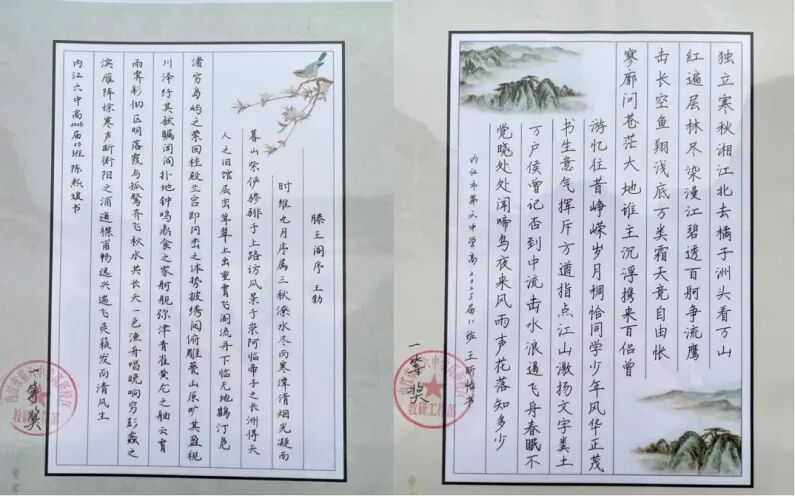 滕王阁序 王勃
时维九月序属三秋潦水尽而寒潭清烟光凝而
暮山紫俨骖騑于上路访风景于崇阿临帝子之长洲得天
人之旧馆层峦耸翠上出重霄飞阁流丹下临无地鹤汀凫
渚穷岛屿之萦回桂殿兰宫即冈峦之体势披绣闼俯雕甍山原旷其盈视
川泽纡其骇瞩闾阎扑地钟鸣鼎食之家舸舰弥津青雀黄龙之舳云霄
雨霁彩彻区明落霞与孤鹜齐飞秋水共长天一色渔舟唱晚响穷彭蠡之
滨雁阵惊寒声断衡阳之浦遥襟甫畅逸兴遄飞爽籁发而清风生
内江六中高2025届25班 陈熙媛书
一等奖
教研工作部
独立寒秋湘江北去橘子洲头看万山
红遍层林尽染漫江碧透百舸争流鹰
击长空鱼翔浅底万类霜天竞自由怅
寥廓问苍茫大地谁主沉浮携来百侣曾
游忆往昔峥嵘岁月稠恰同学少年风华正茂
书生意气挥斥方遒指点江山激扬文字粪土
万户侯曾记否到中流击水浪遏飞舟春眠不
觉晓处处闻啼鸟夜来风雨声花落知多少
内江市第六中学高2025届11班 王昕怡书
一等奖
教研工作部